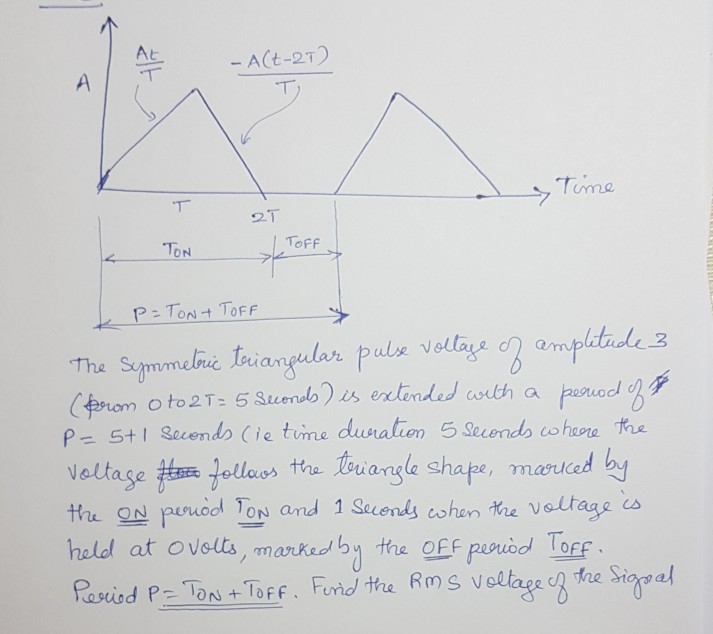 At
T
-A(t-2T)
T
A
Time
T
2T
TON
TOFF
P = TON + TOFF
The Symmetric triangular pulse voltage of amplitude 3
(from 0 to 2T = 5 Seconds) is extended with a period of
P = 5+1 Seconds (ie time duration 5 Seconds where the
voltage follows the triangle shape, marked by
the ON period TON and 1 Seconds when the voltage is
held at 0 volts, marked by the OFF period TOFF.
Period P = TON + TOFF. Find the RMS voltage of the Signal